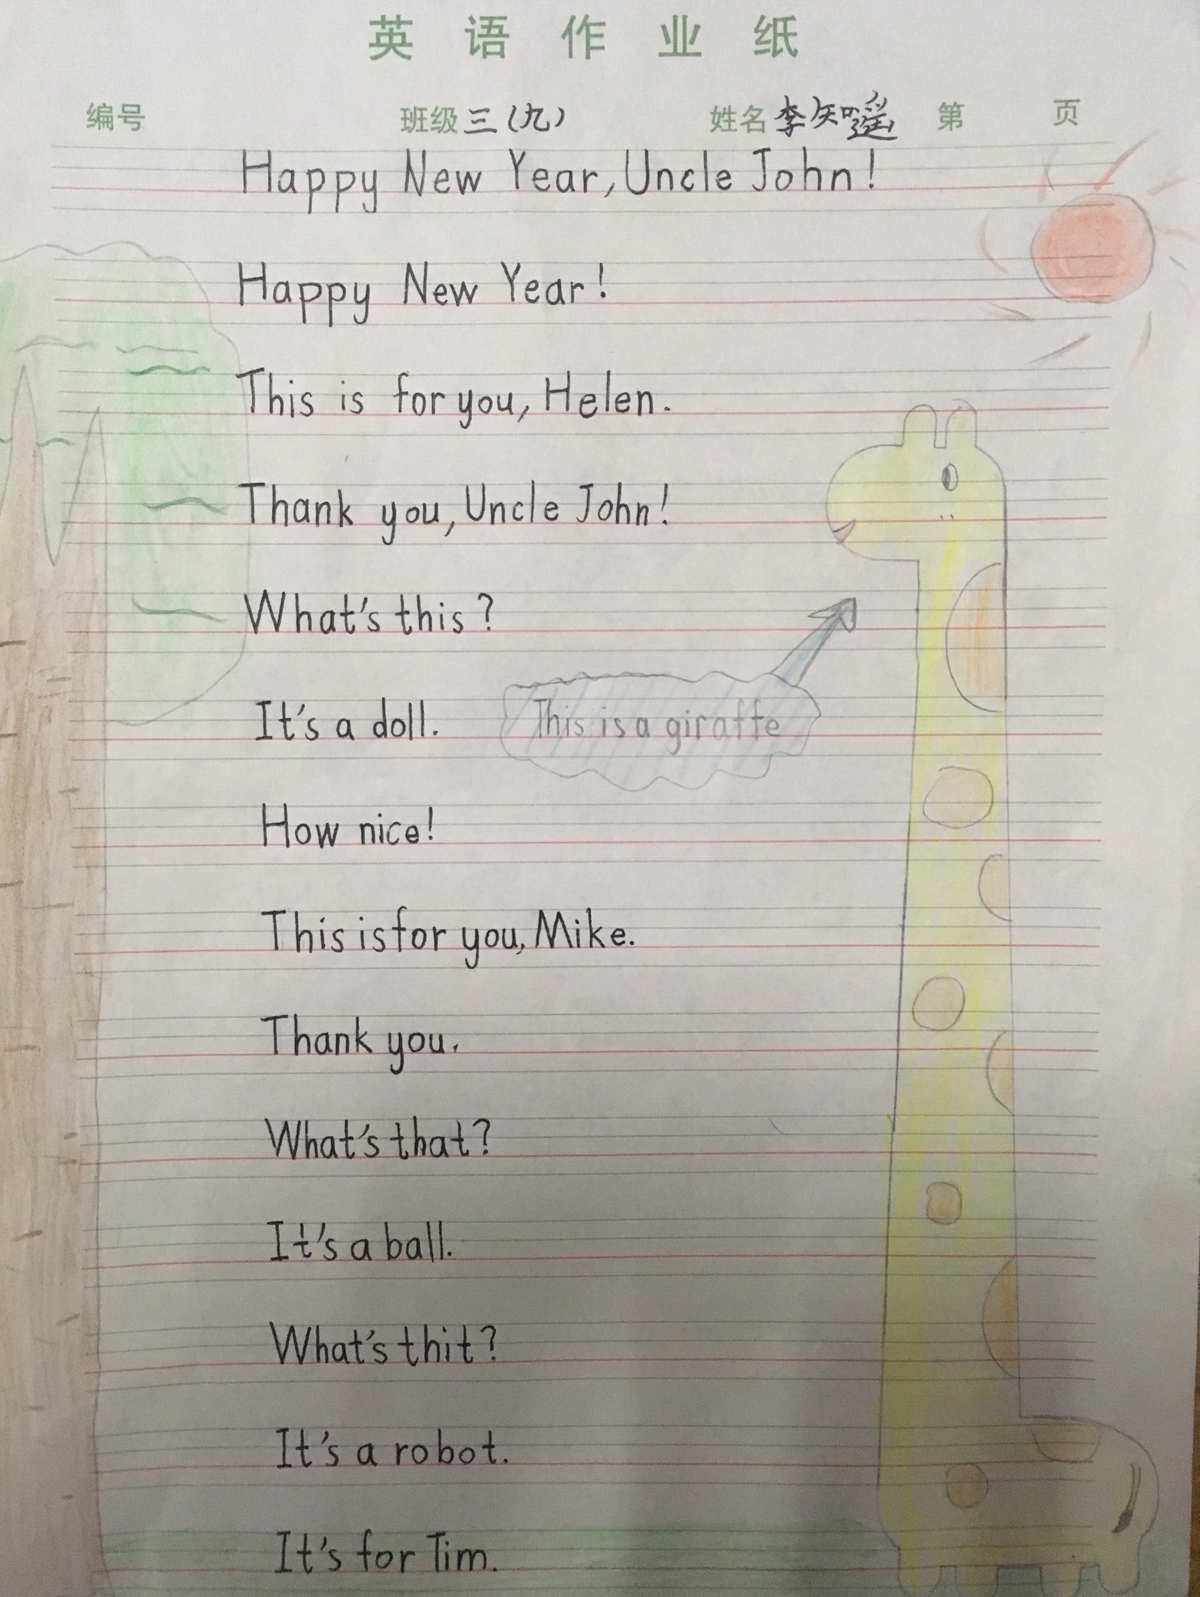 英语作业纸
编号 班级 三(九) 姓名 李知瑶 第 页
Happy New Year, Uncle John!
Happy New Year!
This is for you, Helen.
Thank you, Uncle John!
What's this?
It's a doll.
This is a giraffe
How nice!
This is for you, Mike.
Thank you.
What's that?
It's a ball.
What's thit?
It's a robot.
It's for Tim.